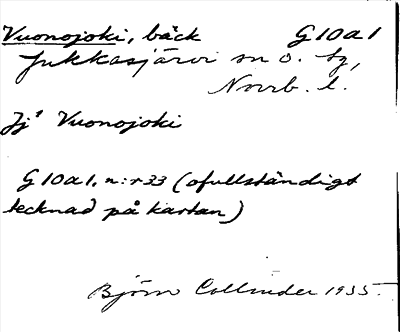 Vuonojoki, bäck G10a1
Jukkasjärvi sn o. tg,
Norrb. l.
Jj¹ Vuonojoki
G10a1, n:r 33 (ofullständigt
tecknad på kartan)
Björn Collinder 1935.